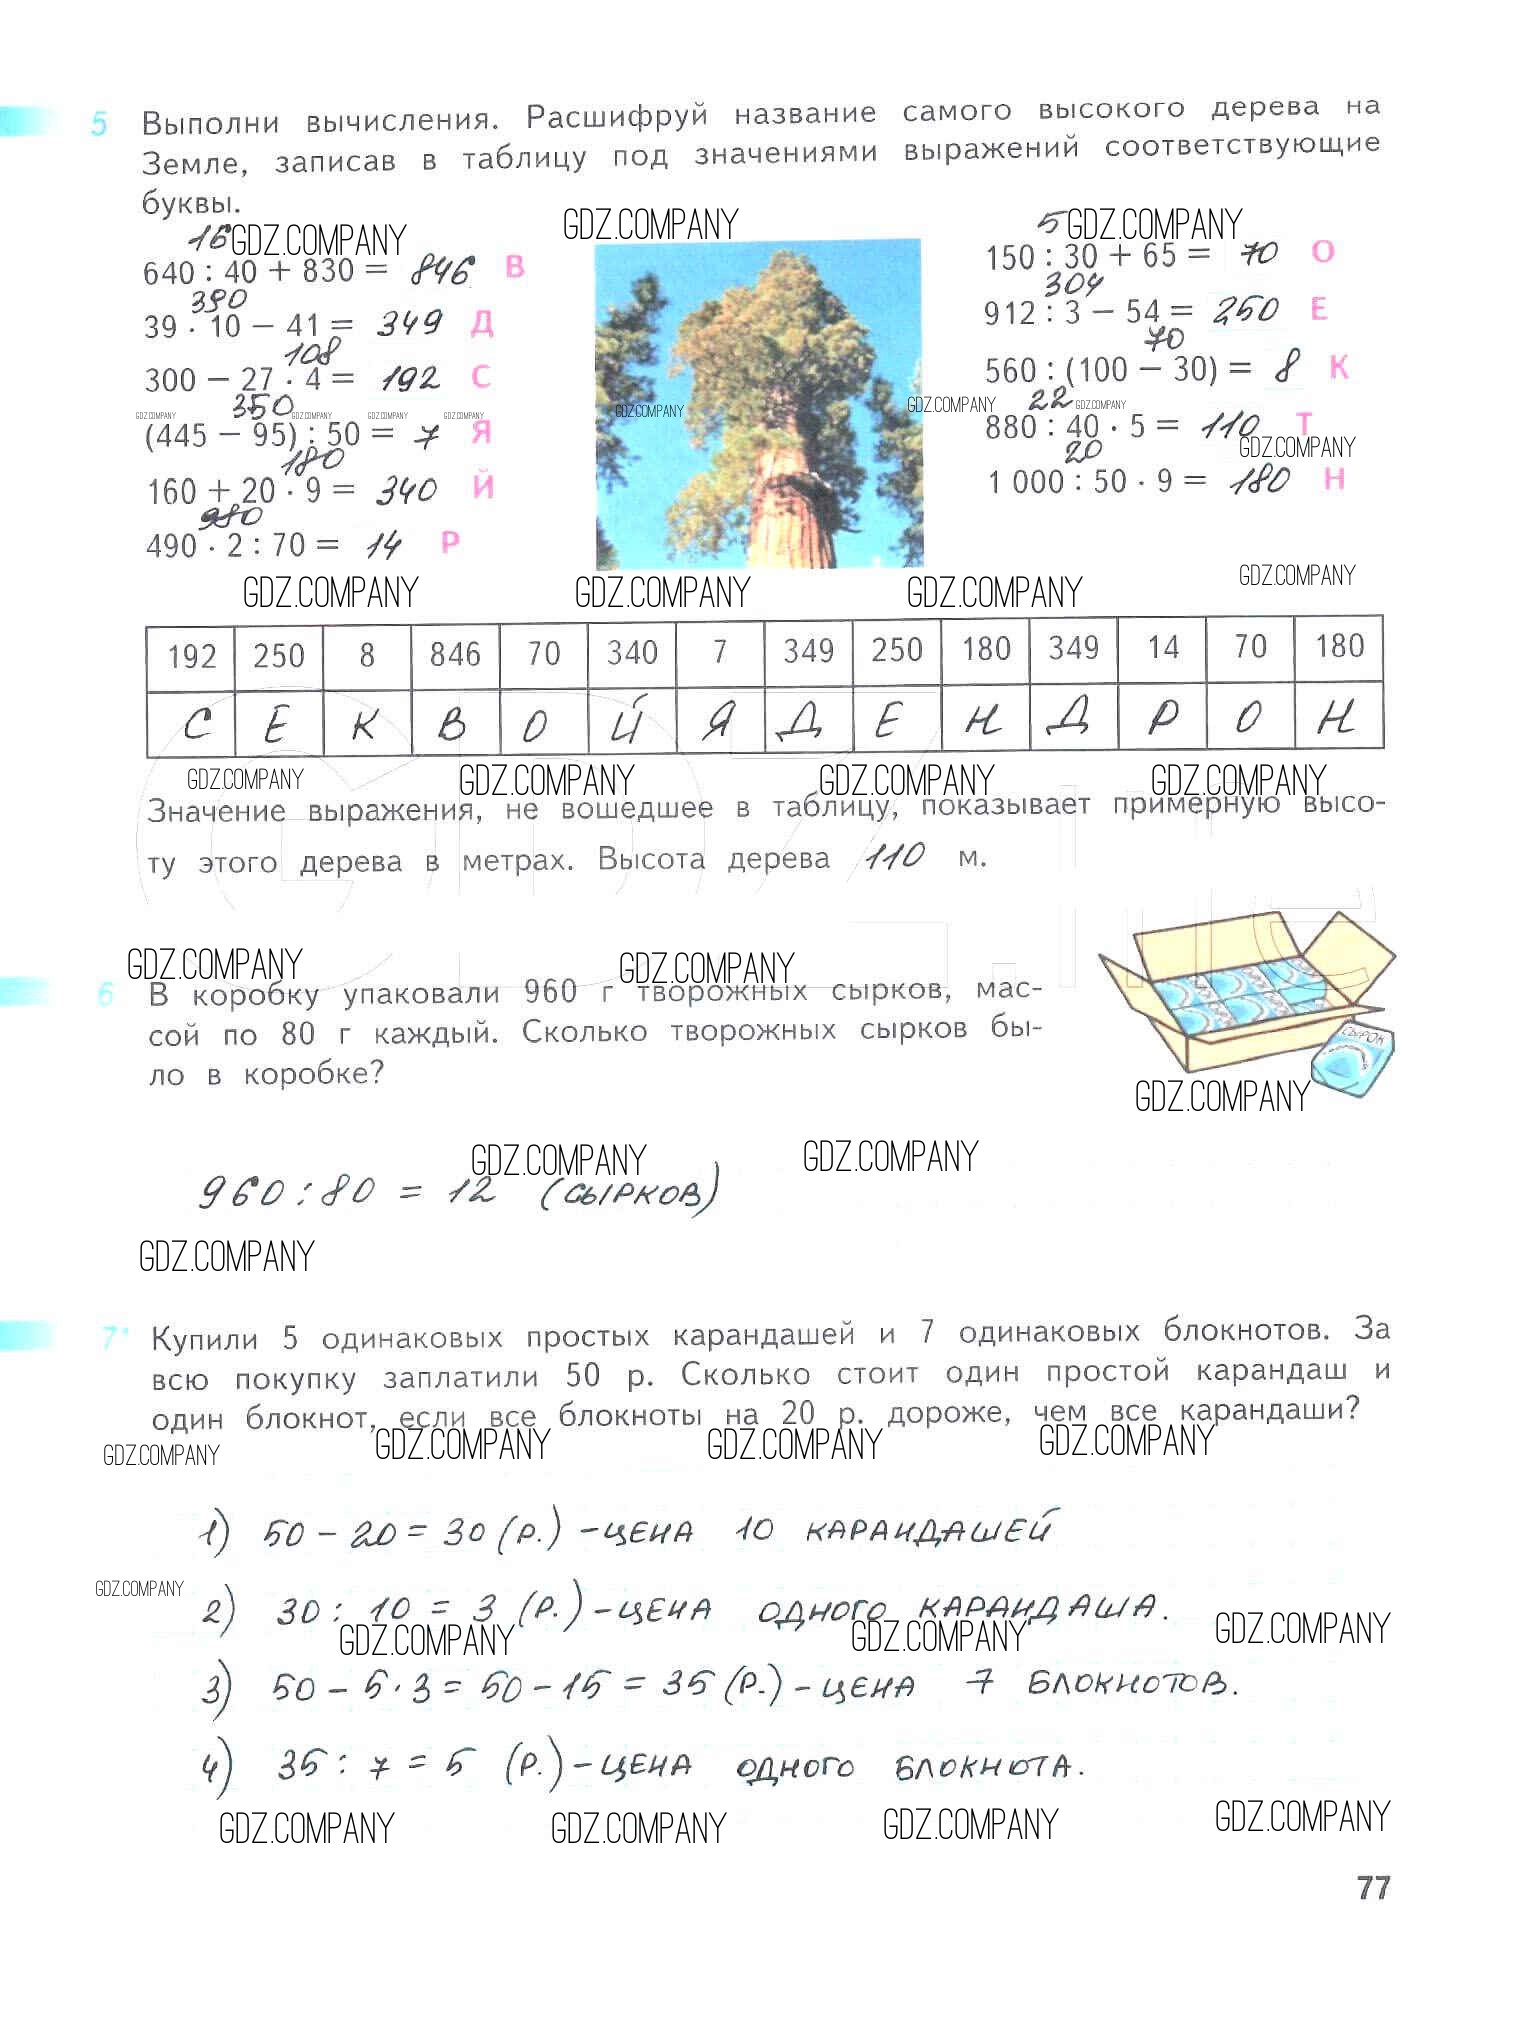 5 Выполни вычисления. Расшифруй название самого высокого дерева на
Земле, записав в таблицу под значениями выражений соответствующие
буквы.
GDZ.COMPANY
16 GDZ.COMPANY
640 : 40 + 830 = 846 В
390
39 · 10 − 41 = 349 Д
108
300 − 27 · 4 = 192 С
350
GDZ.COMPANY GDZ.COMPANY GDZ.COMPANY GDZ.COMPANY
(445 − 95) : 50 = 7 Я
180
160 + 20 · 9 = 340 Й
980
490 · 2 : 70 = 14 Р
GDZ.COMPANY
5 GDZ.COMPANY
150 : 30 + 65 = 70 О
304
912 : 3 − 54 = 250 Е
70
560 : (100 − 30) = 8 К
GDZ.COMPANY 22 GDZ.COMPANY
880 : 40 · 5 = 110 Т
20 GDZ.COMPANY
1 000 : 50 · 9 = 180 Н
GDZ.COMPANY GDZ.COMPANY GDZ.COMPANY GDZ.COMPANY
192 250 8 846 70 340 7 349 250 180 349 14 70 180
С Е К В О Й Я Д Е Н Д Р О Н
GDZ.COMPANY GDZ.COMPANY GDZ.COMPANY GDZ.COMPANY
Значение выражения, не вошедшее в таблицу, показывает примерную высо-
ту этого дерева в метрах. Высота дерева 110 м.
GDZ.COMPANY GDZ.COMPANY
6 В коробку упаковали 960 г творожных сырков, мас-
сой по 80 г каждый. Сколько творожных сырков бы-
ло в коробке?
СЫРОК
GDZ.COMPANY
GDZ.COMPANY GDZ.COMPANY
960 : 80 = 12 (СЫРКОВ)
GDZ.COMPANY
7* Купили 5 одинаковых простых карандашей и 7 одинаковых блокнотов. За
всю покупку заплатили 50 р. Сколько стоит один простой карандаш и
один блокнот, если все блокноты на 20 р. дороже, чем все карандаши?
GDZ.COMPANY GDZ.COMPANY GDZ.COMPANY GDZ.COMPANY
1) 50 − 20 = 30 (Р.) − ЦЕНА 10 КАРАНДАШЕЙ
GDZ.COMPANY
2) 30 : 10 = 3 (Р.) − ЦЕНА ОДНОГО КАРАНДАША.
GDZ.COMPANY GDZ.COMPANY GDZ.COMPANY
3) 50 − 5 · 3 = 50 − 15 = 35 (Р.) − ЦЕНА 7 БЛОКНОТОВ.
4) 35 : 7 = 5 (Р.) − ЦЕНА ОДНОГО БЛОКНОТА.
GDZ.COMPANY GDZ.COMPANY GDZ.COMPANY GDZ.COMPANY
77